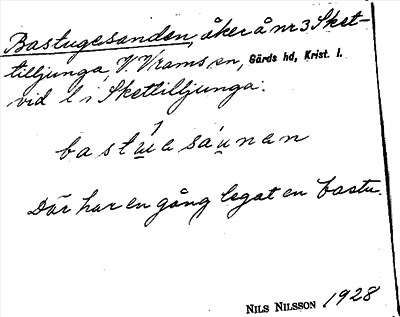 Bastugesanden, åker å nr 3 Sket-
tilljunga, V. Vrams sn, Gärds hd, Krist. l.
vid l i Skettilljunga:
bastuasaunan
Där har en gång legat en bastu.
NILS NILSSON 1928